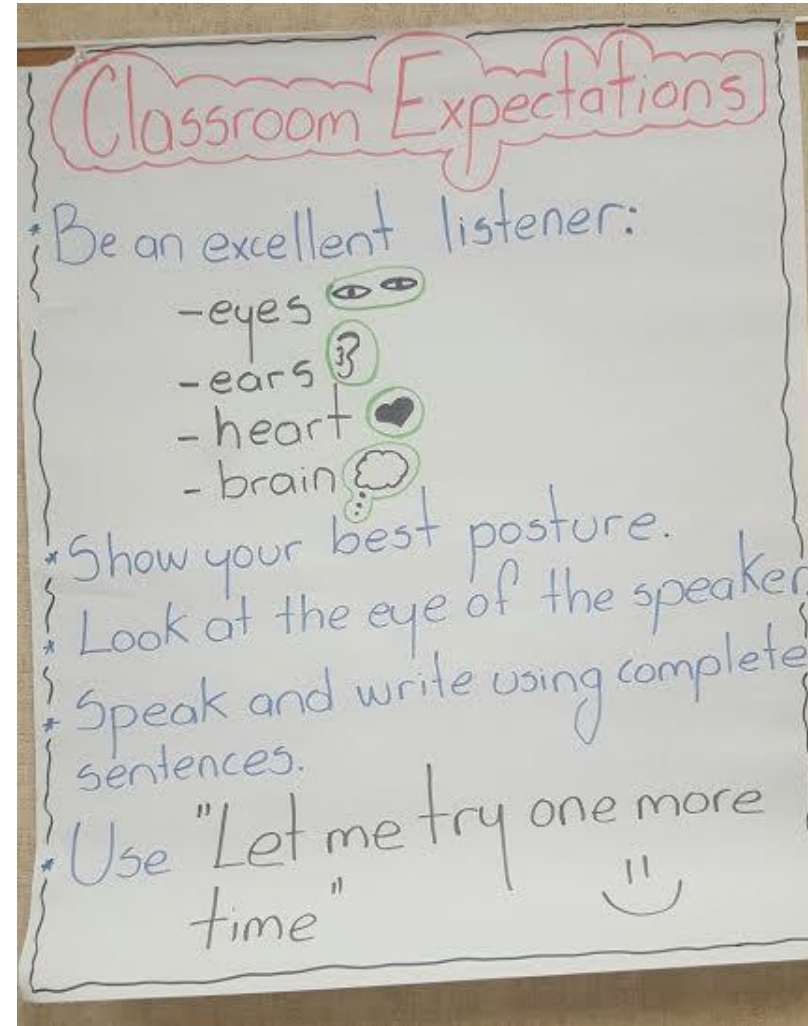 Classroom Expectations
* Be an excellent listener:
- eyes
- ears
- heart
- brain
* Show your best posture.
* Look at the eye of the speaker
* Speak and write using complete
sentences.
* Use "Let me try one more
time"